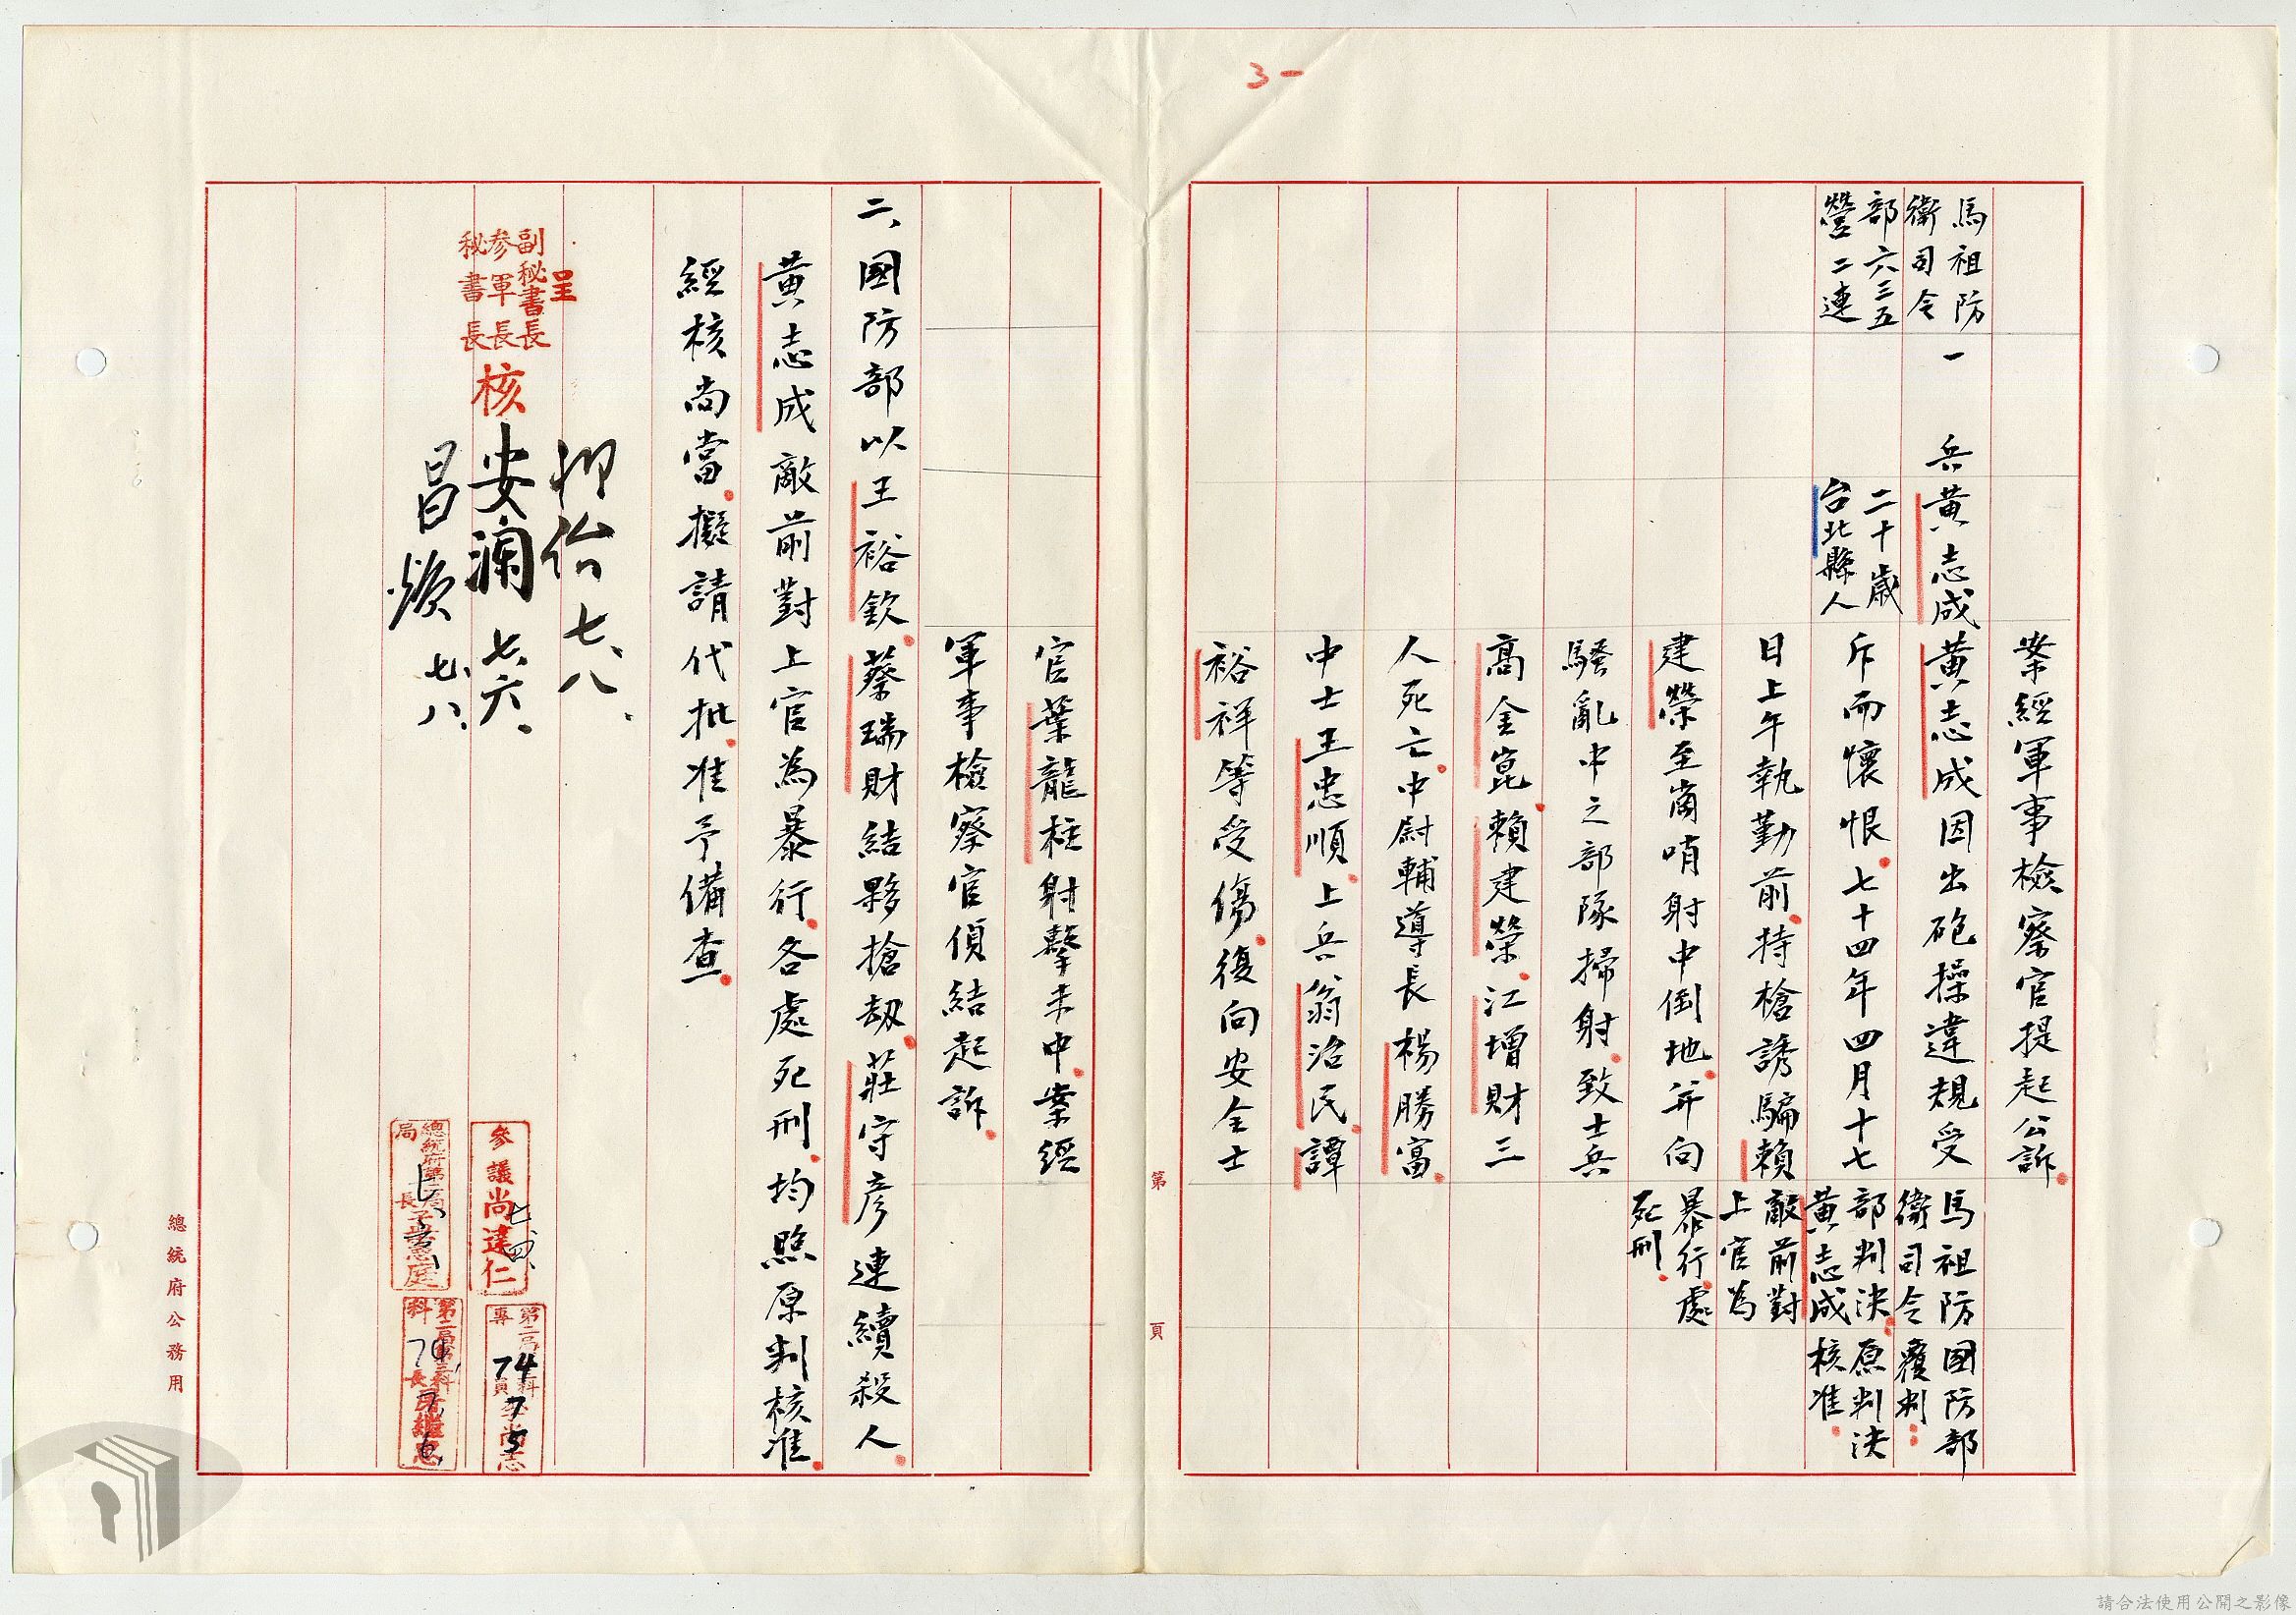 3-
案經軍事檢察官提起公訴。
馬祖防
衛司令
部六三五
營二連
一兵黃志成
二十歲
台北縣人
黃志成因出砲操違規受
斥而懷恨。七十四年四月十七
日上午執勤前、持槍誘騙賴
建榮至崗哨射中倒地。并向
騷亂中之部隊掃射。致士兵
高金崑、賴建榮、江增財三
人死亡。中尉輔導長楊勝富、
中士王忠順、上兵翁洺民、譚
裕祥等受傷。復向安全士
馬祖防
衛司令
部判決:
黃志成
敵前對
上官為
暴行處
死刑。
國防部
覆判:
原判決
核准。
官葉龍柱射擊未中。案經
軍事檢察官偵結起訴。
二、國防部以王裕欽、蔡瑞財結夥搶劫、莊守彥連續殺人。
黃志成敵前對上官為暴行、各處死刑、均照原判核准。
經核尚當。擬請代批、准予備查。
呈
副秘書長
參軍長
秘書長
核
七、八、
安瀾 七、六、
昌煥 七、八、
參議尚達仁
七、四、
74
7
5
第 頁
總統府公務用
請合法使用公開之影像